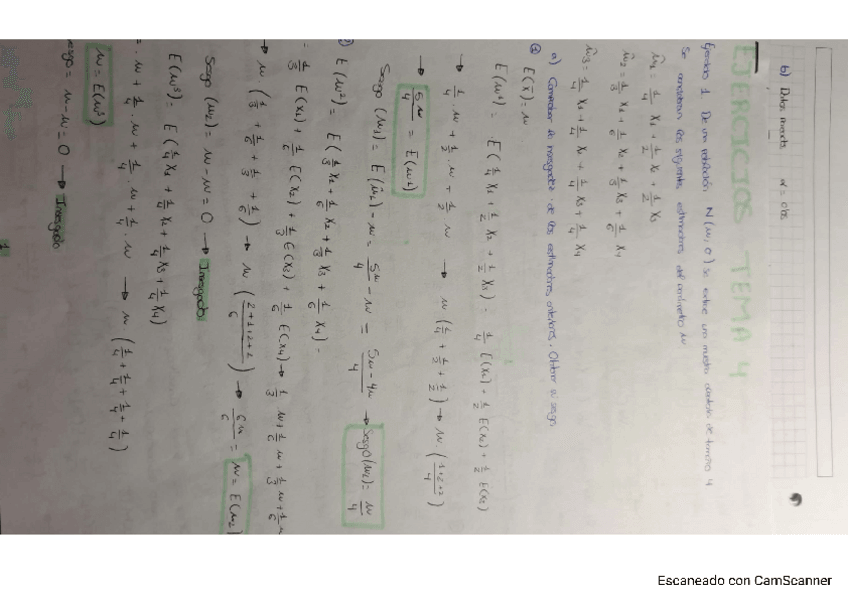 b) Datos
EJERCICIOS TEMA 4
Ejercicio 1. De una población N(μ, σ) se extrae una muestra aleatoria de tamaño 4
Se consideran los siguientes estimadores del parámetro μ
μ̂1 = 1/4 X1 + 1/2 X2 + 1/2 X3
μ̂2 = 1/3 X1 + 1/6 X2 + 1/3 X3 + 1/6 X4
μ̂3 = 1/4 X1 + 1/4 X2 + 1/4 X3 + 1/4 X4
a) Comprobar la insesgadez de los estimadores anteriores. Obtener el sesgo
E(x̄) = μ
1/4 · μ + 1/2 · μ + 1/2 · μ → μ (1/4 + 1/2 + 1/2) → μ ((1+2+2)/4)
→ 5μ/4
= 5μ/4 - μ = (5μ - 4μ)/4 → Sesgo (μ1) = μ/4
= 1/3 E(X1) + 1/6 E(X2) + 1/3 E(X3) + 1/6 E(X4) → 1/3 μ + 1/6 μ + 1/3 μ + 1/6 μ
→ μ (1/3 + 1/6 + 1/3 + 1/6) → μ ((2+1+2+1)/6) → 6μ/6 = μ = E(μ2)
Sesgo (μ2) = μ - μ = 0 → Insesgado
E(μ3) = E(1/4 X1 + 1/4 X2 + 1/4 X3 + 1/4 X4)
μ + 1/4 · μ + 1/4 · μ + 1/4 · μ → μ (1/4 + 1/4 + 1/4 + 1/4)
μ = E(μ3)
μ - μ = 0 → Insesgado
1
Escaneado con CamScanner